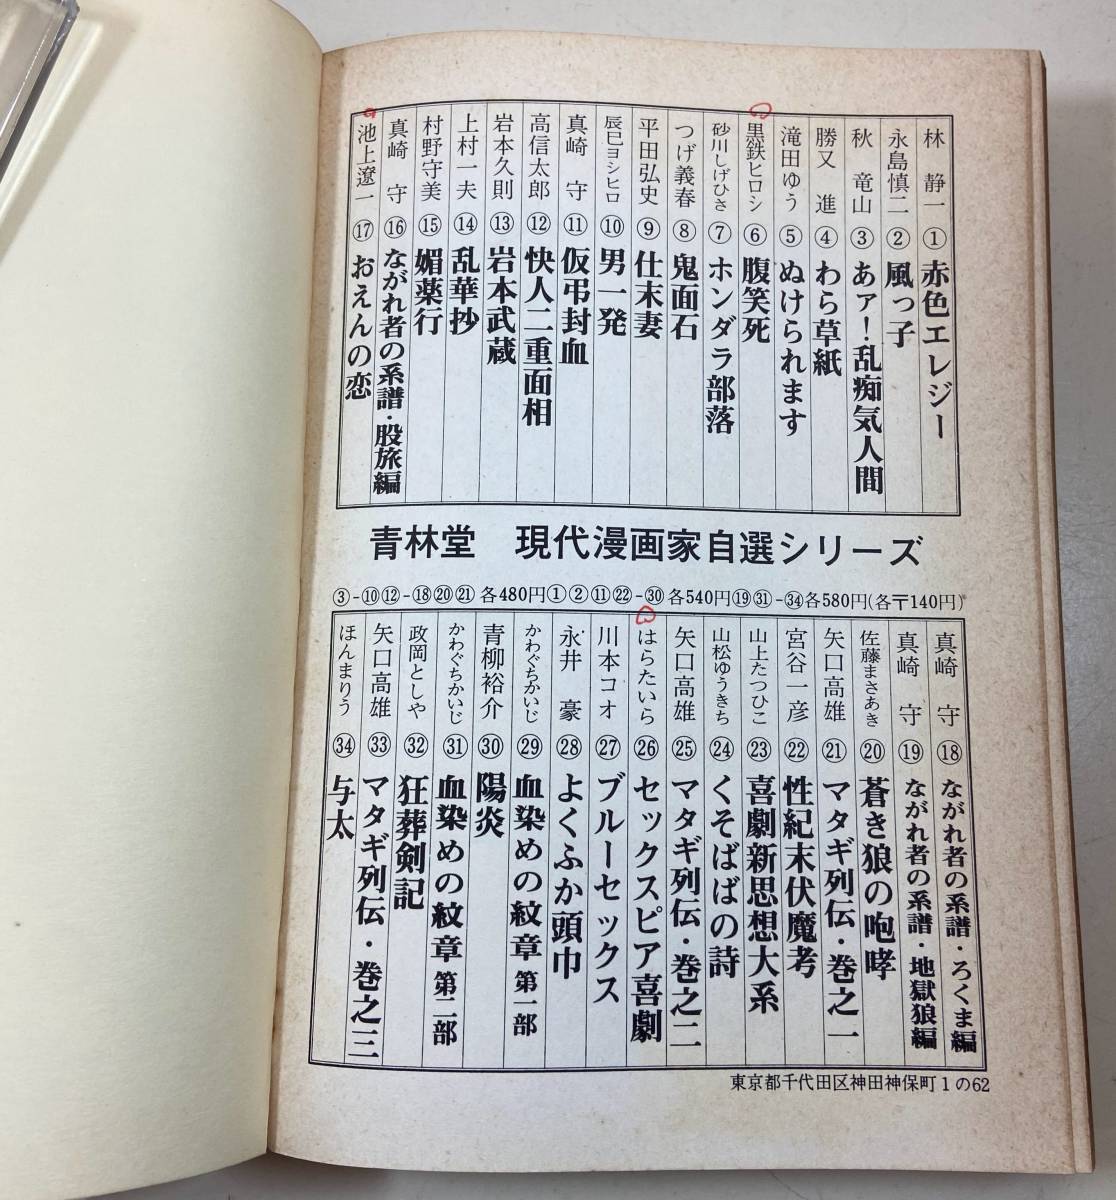 林 静一 ① 赤色エレジー
永島慎二 ② 風っ子
秋 竜山 ③ あァ!乱痴気人間
勝又 進 ④ わら草紙
滝田ゆう ⑤ ぬけられます
黒鉄ヒロシ ⑥ 腹笑死
砂川しげひさ ⑦ ホンダラ部落
つげ義春 ⑧ 鬼面石
平田弘史 ⑨ 仕末妻
辰巳ヨシヒロ ⑩ 男一発
真崎 守 ⑪ 仮弔封血
高信太郎 ⑫ 快人二重面相
岩本久則 ⑬ 岩本武蔵
上村一夫 ⑭ 乱華抄
村野守美 ⑮ 媚薬行
真崎 守 ⑯ ながれ者の系譜・股旅編
池上遼一 ⑰ おえんの恋
青林堂 現代漫画家自選シリーズ
③-⑩⑫-⑱⑳㉑各480円①②⑪㉒-㉚各540円⑲㉛-㉞各580円(各〒140円)
真崎 守 ⑱ ながれ者の系譜・ろくま編
真崎 守 ⑲ ながれ者の系譜・地獄狼編
佐藤まさあき ⑳ 蒼き狼の咆哮
矢口高雄 ㉑ マタギ列伝・巻之一
宮谷一彦 ㉒ 性紀末伏魔考
山上たつひこ ㉓ 喜劇新思想大系
山松ゆうきち ㉔ くそばばの詩
矢口高雄 ㉕ マタギ列伝・巻之二
はらたいら ㉖ セックスピア喜劇
川本コオ ㉗ ブルーセックス
永井 豪 ㉘ よくふか頭巾
かわぐちかいじ ㉙ 血染めの紋章 第一部
青柳裕介 ㉚ 陽炎
かわぐちかいじ ㉛ 血染めの紋章 第二部
政岡としや ㉜ 狂葬剣記
矢口高雄 ㉝ マタギ列伝・巻之三
ほんまりう ㉞ 与太
東京都千代田区神田神保町1の62